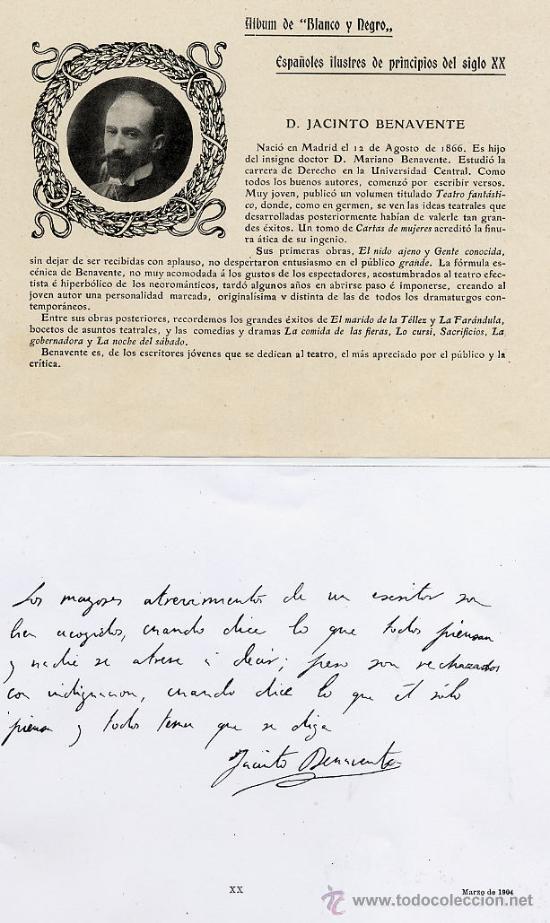 Album de "Blanco y Negro„
Españoles ilustres de principios del siglo XX
D. JACINTO BENAVENTE
Nació en Madrid el 12 de Agosto de 1866. Es hijo
del insigne doctor D. Mariano Benavente. Estudió la
carrera de Derecho en la Universidad Central. Como
todos los buenos autores, comenzó por escribir versos.
Muy joven, publicó un volumen titulado Teatro fantásti-
co, donde, como en germen, se ven las ideas teatrales que
desarrolladas posteriormente habían de valerle tan gran-
des éxitos. Un tomo de Cartas de mujeres acreditó la finu-
ra ática de su ingenio.
Sus primeras obras, El nido ajeno y Gente conocida,
sin dejar de ser recibidas con aplauso, no despertaron entusiasmo en el público grande. La fórmula es-
cénica de Benavente, no muy acomodada á los gustos de los espectadores, acostumbrados al teatro efec-
tista é hiperbólico de los neorománticos, tardó algunos años en abrirse paso é imponerse, creando al
joven autor una personalidad marcada, originalísima y distinta de las de todos los dramaturgos con-
temporáneos.
Entre sus obras posteriores, recordemos los grandes éxitos de El marido de la Téllez y La Farándula,
bocetos de asuntos teatrales, y las comedias y dramas La comida de las fieras, Lo cursi, Sacrificios, La
gobernadora y La noche del sábado.
Benavente es, de los escritores jóvenes que se dedican al teatro, el más apreciado por el público y la
crítica.
Los mayores atrevimientos de un escritor son
bien acogidos, cuando dice lo que todos piensan
y nadie se atreve á decir; pero son rechazados
con indignacion, cuando dice lo que él sólo
piensa y todos temen que se diga
Jacinto Benavente
XX
Marzo de 1904
www.todocoleccion.net